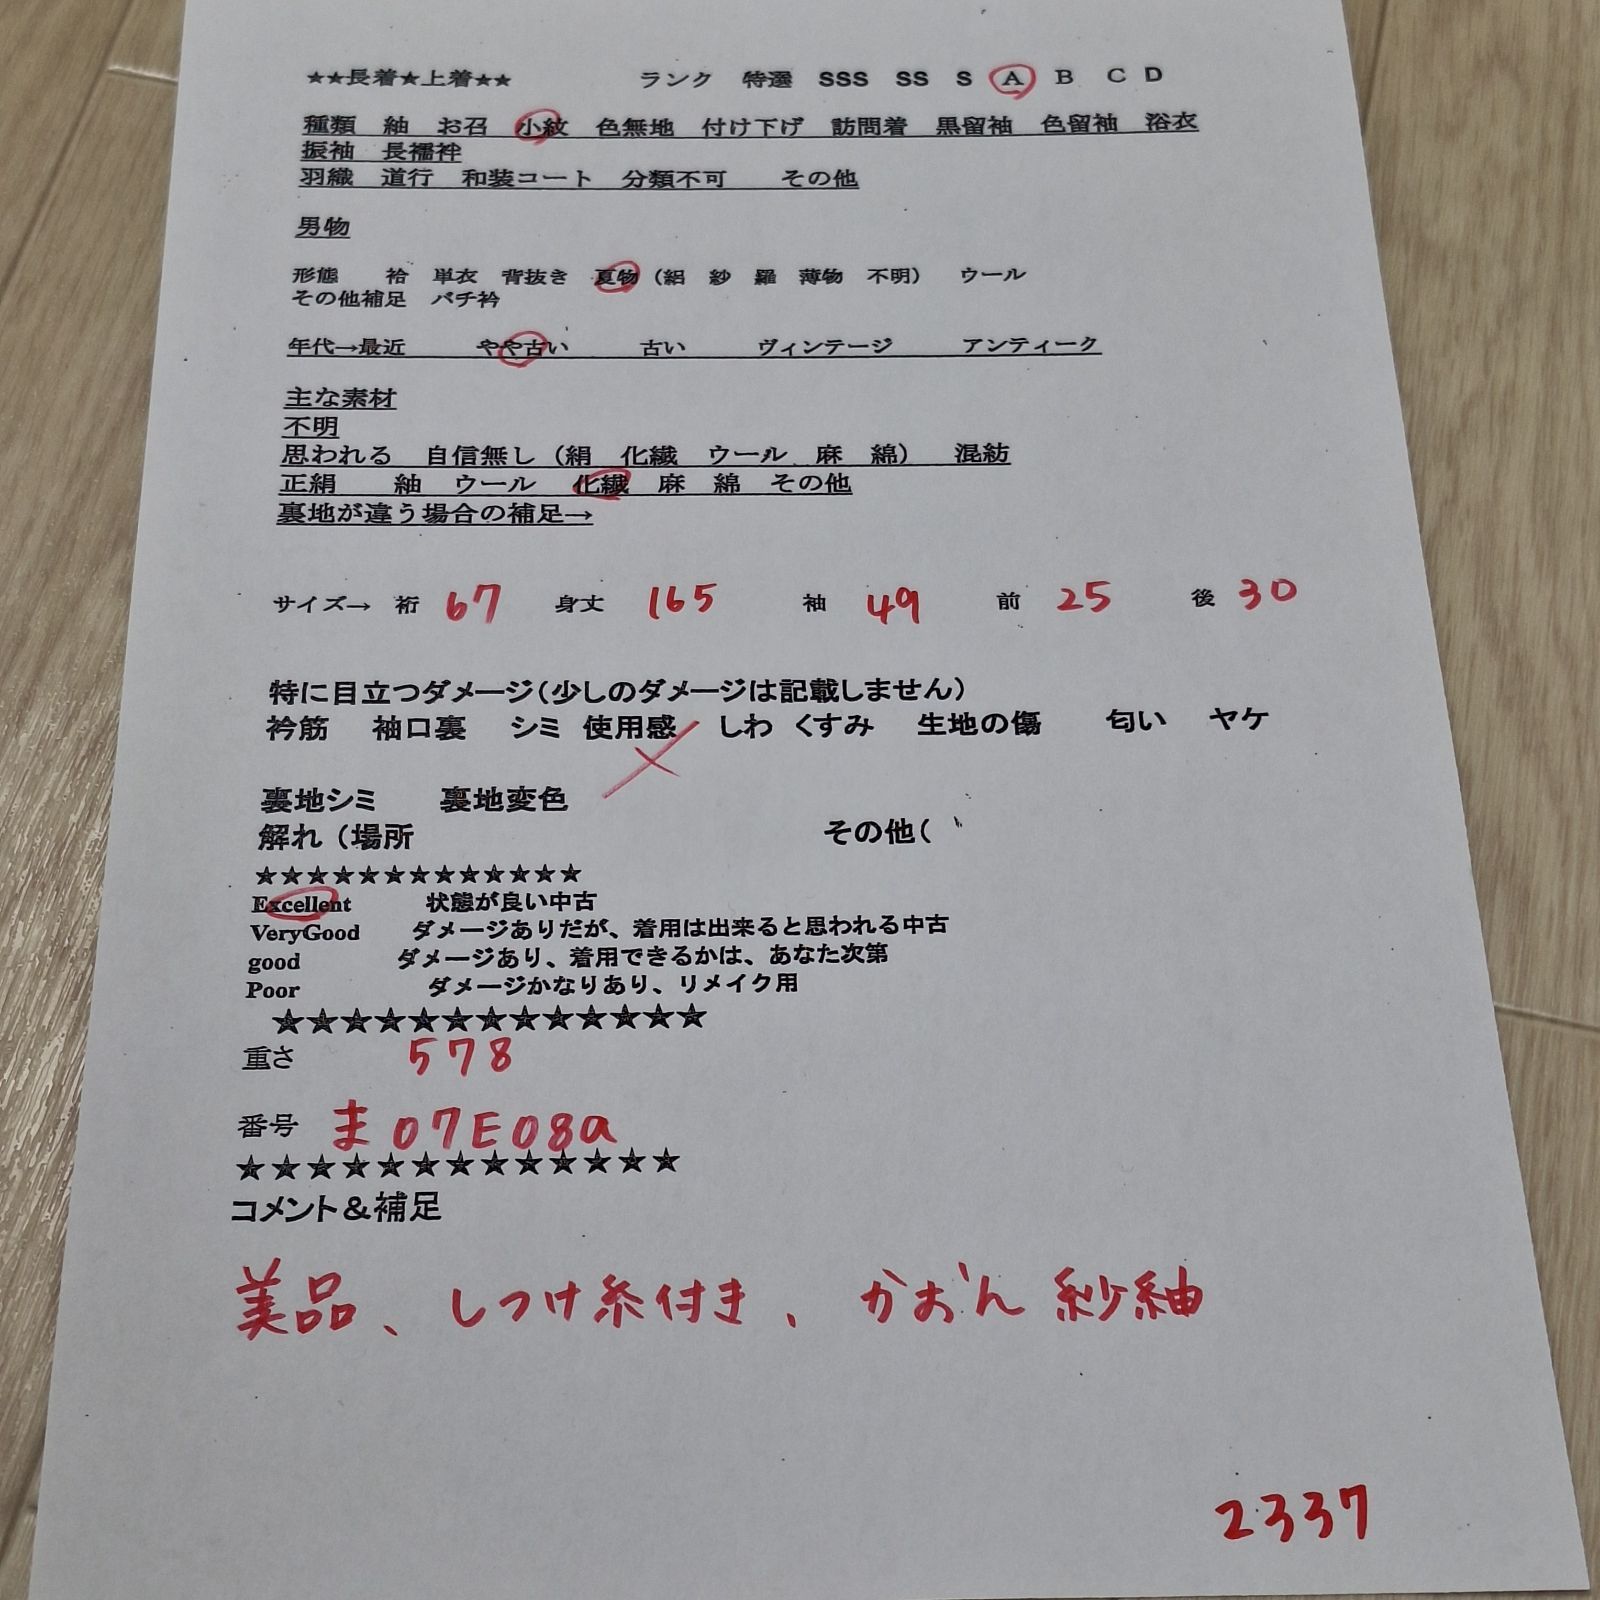 ★★長着★上着★★ ランク 特選 SSS SS S A B C D
種類 紬 お召 小紋 色無地 付け下げ 訪問着 黒留袖 色留袖 浴衣
振袖 長襦袢
羽織 道行 和装コート 分類不可 その他
男物
形態 袷 単衣 背抜き 夏物（絽 紗 羅 薄物 不明） ウール
その他補足 バチ衿
年代→最近 やや古い 古い ヴィンテージ アンティーク
主な素材
不明
思われる 自信無し（絹 化繊 ウール 麻 綿） 混紡
正絹 紬 ウール 化繊 麻 綿 その他
裏地が違う場合の補足→
サイズ→ 裄 67 身丈 165 袖 49 前 25 後 30
特に目立つダメージ（少しのダメージは記載しません）
衿筋 袖口裏 シミ 使用感 しわ くすみ 生地の傷 匂い ヤケ
裏地シミ 裏地変色
解れ（場所 その他（
★★★★★★★★★★★★★
Excellent 状態が良い中古
VeryGood ダメージありだが、着用は出来ると思われる中古
good ダメージあり、着用できるかは、あなた次第
Poor ダメージかなりあり、リメイク用
★★★★★★★★★★★★★
重さ 578
番号 ま07E08a
★★★★★★★★★★★★★
コメント＆補足
美品、しつけ糸付き、かおん紗紬
2337